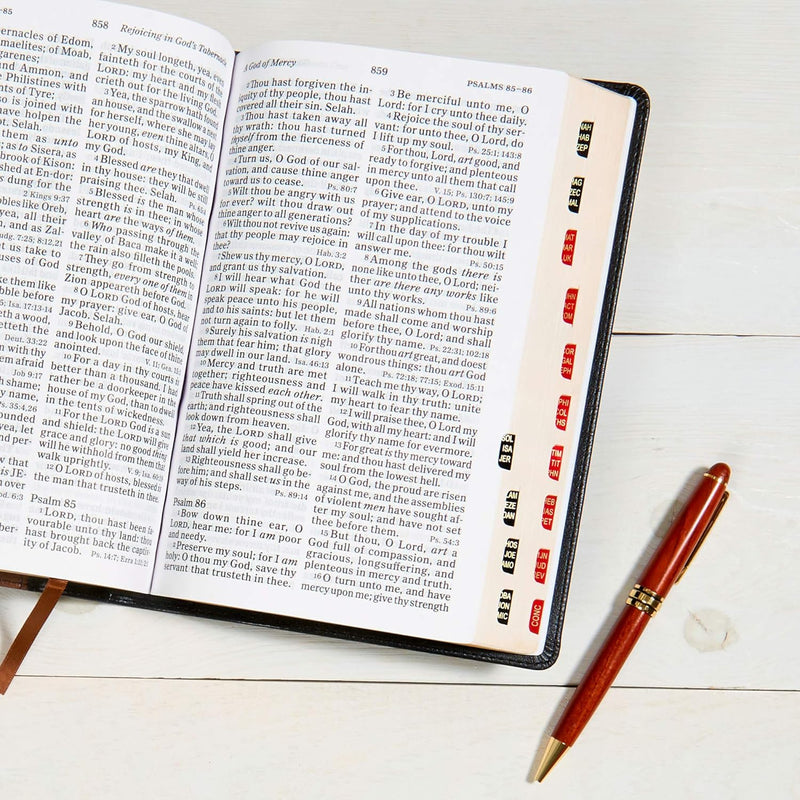 -85
858 Rejoicing in God's Tabernacle
ernacles of Edom,
maelites; of Moab,
garenes;
and Ammon, and
he Philistines with
nts of Tyre;
so is joined with
have holpen the
ot. Selah.
them as unto
as to Sisera, as
brook of Kison:
shed at En-dor:
s dung for the
2 Kings 9:37
obles like Oreb,
yea, all their
h, and as Zal-
Judg. 7:25; 8:12,21
et us take to
uses of God
ke them like
bble before
:5; Isa. 17:13-14
eth a wood,
etteth the
Deut. 33:22
n with thy
em afraid
Job 9:17
h shame;
y name,
s. 35:4,26
ounded
yea, let
nd per-
w that
is JE-
n over
od. 6:3
2 My soul longeth, yea, even
fainteth for the courts of the
LORD: my heart and my flesh
crieth out for the living God.
3 Yea, the sparrow hath found
an house, and the swallow a nest
for herself, where she may lay
her young, even thine altars, O
LORD of hosts, my King, and
my God.
4 Blessed are they that dwell
in thy house: they will be still
praising thee. Selah.
5 Blessed is the man whose
strength is in thee; in whose
heart are the ways of them.
6 Who passing through the
valley of Baca make it a well;
the rain also filleth the pools.
7 They go from strength to
strength, every one of them in
Zion appeareth before God.
8 O LORD God of hosts, hear
my prayer: give ear, O God of
Jacob. Selah.
9 Behold, O God our shield,
and look upon the face of thine
anointed.
10 For a day in thy courts is
better than a thousand. I had
rather be a doorkeeper in the
house of my God, than to dwell
in the tents of wickedness.
11 For the LORD God is a sun
and shield: the LORD will give
grace and glory: no good thing
will he withhold from them that
walk uprightly.
12 O LORD of hosts, blessed is
the man that trusteth in thee.
Psalm 85
1 LORD, thou hast been fa-
vourable unto thy land: thou
hast brought back the captiv-
ity of Jacob. Ps. 14:7; Ezra 1:2,2:
A God of Mercy 859 PSALMS 85–86
2 Thou hast forgiven the in-
iquity of thy people, thou hast
covered all their sin. Selah.
3 Thou hast taken away all
thy wrath: thou hast turned
thyself from the fierceness of
thine anger.
4 Turn us, O God of our sal-
vation, and cause thine anger
toward us to cease. Ps. 80:7
5 Wilt thou be angry with us
for ever? wilt thou draw out
thine anger to all generations?
6 Wilt thou not revive us again:
that thy people may rejoice in
thee? Hab. 3:2
7 Shew us thy mercy, O LORD,
and grant us thy salvation.
8 I will hear what God the
LORD will speak: for he will
speak peace unto his people,
and to his saints: but let them
not turn again to folly. Hab. 2:1
9 Surely his salvation is nigh
them that fear him; that glory
may dwell in our land. Isa. 46:13
10 Mercy and truth are met
together; righteousness and
peace have kissed each other.
11 Truth shall spring out of the
earth; and righteousness shall
look down from heaven.
12 Yea, the LORD shall give
that which is good; and our
land shall yield her increase.
13 Righteousness shall go be-
fore him; and shall set us in the
way of his steps. Ps. 89:14
Psalm 86
1 Bow down thine ear, O
LORD, hear me: for I am poor
and needy.
2 Preserve my soul; for I am
holy: O thou my God, save thy
servant that trusteth in thee.
3 Be merciful unto me, O
Lord: for I cry unto thee daily.
4 Rejoice the soul of thy ser-
vant: for unto thee, O Lord, do
I lift up my soul. Ps. 25:1; 143:8
5 For thou, Lord, art good, and
ready to forgive; and plenteous
in mercy unto all them that call
upon thee. V. 15; Ps. 130:7; 145:9
6 Give ear, O LORD, unto my
prayer; and attend to the voice
of my supplications.
7 In the day of my trouble I
will call upon thee: for thou wilt
answer me. Ps. 50:15
8 Among the gods there is
none like unto thee, O Lord; nei-
ther are there any works like
unto thy works. Ps. 89:6
9 All nations whom thou hast
made shall come and worship
before thee, O Lord; and shall
glorify thy name. Ps. 22:31; 102:18
10 For thou art great, and doest
wondrous things: thou art God
alone. Ps. 72:18; 77:15; Exod. 15:11
11 Teach me thy way, O LORD;
I will walk in thy truth: unite
my heart to fear thy name.
12 I will praise thee, O Lord my
God, with all my heart: and I will
glorify thy name for evermore.
13 For great is thy mercy toward
me: and thou hast delivered my
soul from the lowest hell.
14 O God, the proud are risen
against me, and the assemblies
of violent men have sought af-
ter my soul; and have not set
thee before them. Ps. 54:3
15 But thou, O Lord, art a
God full of compassion, and
gracious, longsuffering, and
plenteous in mercy and truth.
16 O turn unto me, and have
mercy upon me; give thy strength
NAH
HAB
ZEP
HAG
ZEC
MAL
MAT
MAR
LUK
JHN
ACT
ROM
COR
GAL
EPH
PHI
COL
THS
SOL
ISA
JER
TIM
TIT
PHN
LAM
EZE
DAN
HEB
JAS
PET
HOS
JOE
AMO
JN
JUD
REV
OBA
JON
MIC
CONC